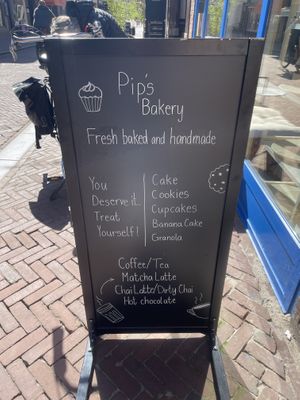 Pip's
Bakery
Fresh baked and handmade
You
Deserve it..
Treat
Yourself!
Cake
Cookies
Cupcakes
Banana Cake
Granola
Coffee/Tea
Matcha Latte
Chai Latte/Dirty Chai
Hot chocolate